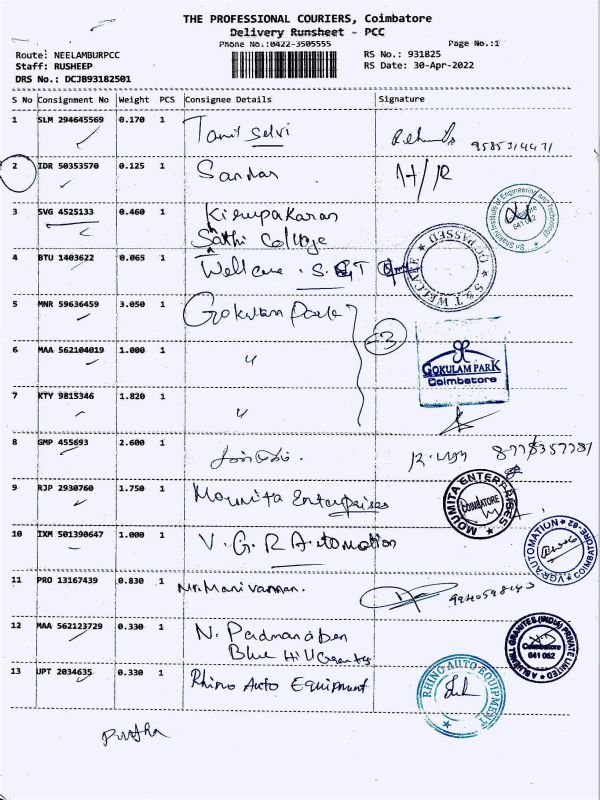 THE PROFESSIONAL COURIERS, Coimbatore
Delivery Runsheet - PCC
Phone No.:0422-3505555
Page No.:1
Route: NEELAMBURPCC
Staff: RUSHEEP
DRS No.: DCJB93182501
RS No.: 931825
RS Date: 30-Apr-2022
S No Consignment No Weight PCS Consignee Details Signature
1 SLM 294645569 0.170 1 Tamil Selvi
2 IDR 50353570 0.125 1
3 SVG 4525133 0.460 1 Kirupakaran
Sakthi College
Sri Shakthi Institute of Engineering and Technology
641 062
4 BTU 1403622 0.065 1 Wellcare
5 MNR 59636459 3.050 1 Gokulam Park
3
6 MAA 562104019 1.000 1 "
GOKULAM PARK
Coimbatore
7 KTY 9815346 1.820 1 "
8 GMP 455693 2.600 1
9 RJP 2930760 1.750 1 Moumita Enterprises
MOUMITA ENTERPRISES
COIMBATORE
10 IXM 501390647 1.000 1 V.G.R Automation
VGR AUTOMATION
COIMBATORE-62
11 PRO 13167439 0.830 1 Mr. Manivannan.
12 MAA 562123729 0.330 1 N. Padmanaben
Blue Hill Granites
A BLUEHILL GRANITES (INDIA) PRIVATE LIMITED
Coimbatore
641 062
13 UPT 2034635 0.330 1 Rhino Auto Equipment
RHINO AUTO EQUIPMENT